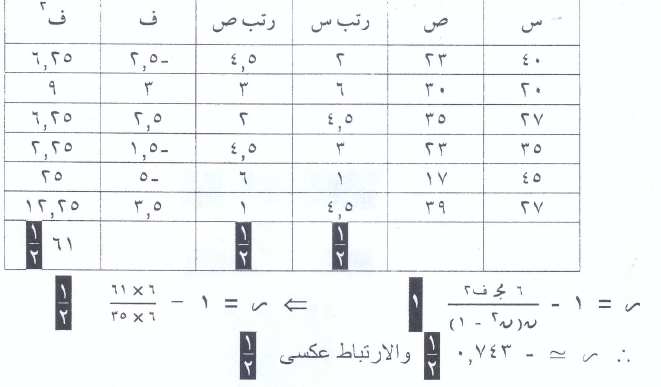 س ص رتب س رتب ص ف ف٢
٤٠ ٢٣ ٢ ٤,٥ -٢,٥ ٦,٢٥
٢٠ ٣٠ ٦ ٣ ٣ ٩
٢٧ ٣٥ ٤,٥ ٢ ٢,٥ ٦,٢٥
٣٥ ٢٣ ٣ ٤,٥ -١,٥ ٢,٢٥
٤٥ ١٧ ١ ٦ -٥ ٢٥
٢٧ ٣٩ ٤,٥ ١ ٣,٥ ١٢,٢٥
١/٢ ١/٢ ٦١ ١/٢
ر = ١ - ٦ مجـ ف٢ / ن(ن٢ - ١) ١ ⇐ ر = ١ - ٦ × ٦١ / ٦ × ٣٥ ١/٢
∴ ر ≃ - ٠,٧٤٣ ١/٢ والارتباط عكسى ١/٢